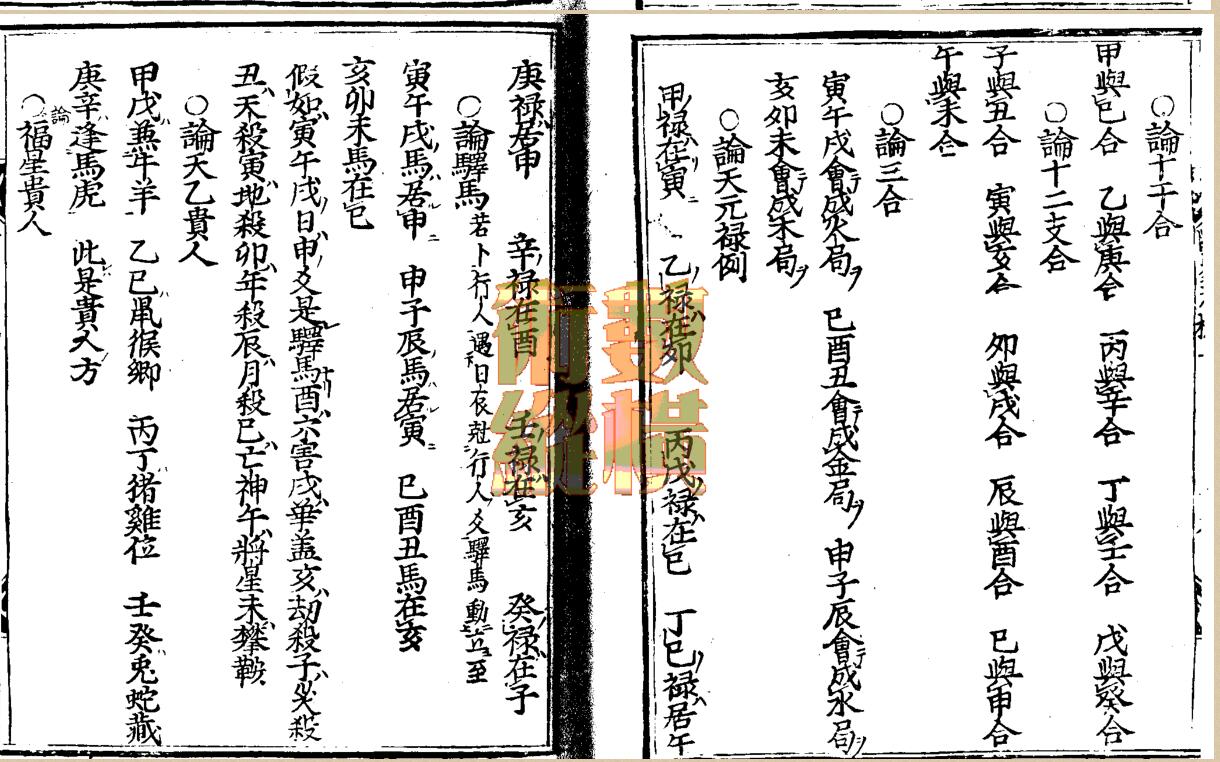 ○論十干合
甲與己合 乙與庚合 丙與辛合 丁與壬合 戊與癸合
○論十二支合
子與丑合 寅與亥合 卯與戌合 辰與酉合 巳與申合
午與未合
○論三合
寅午戌會テ成火局ヲ 巳酉丑會テ成金局ヲ 申子辰會テ成水局ヲ
亥卯未會テ成木局ヲ
○論天元禄例
甲ノ禄ハ在リ寅ニ 乙ノ禄ハ在卯 丙戊ノ禄ハ在巳 丁己ノ禄ハ居午
庚禄居申 辛禄在酉 壬禄在亥 癸禄在子
○論驛馬 若卜行人遇日辰尅行人爻驛馬動立至
寅午戌ノ馬ハ居申ニ 申子辰ノ馬ハ居寅ニ 巳酉丑馬在亥
亥卯未馬在巳
假如寅午戌日ノ申爻是驛馬酉ハ六害戌ハ華盖亥ハ劫殺子ハ災殺
丑ハ天殺寅ハ地殺卯ハ年殺辰ハ月殺巳ハ亡神午ハ將星未ハ攀鞍
○論天乙貴人
甲戊兼牛羊 乙己鼠猴鄉 丙丁猪雞位 壬癸兎蛇藏
庚辛逢馬虎 此是貴人方
○論福星貴人
數術縱橫